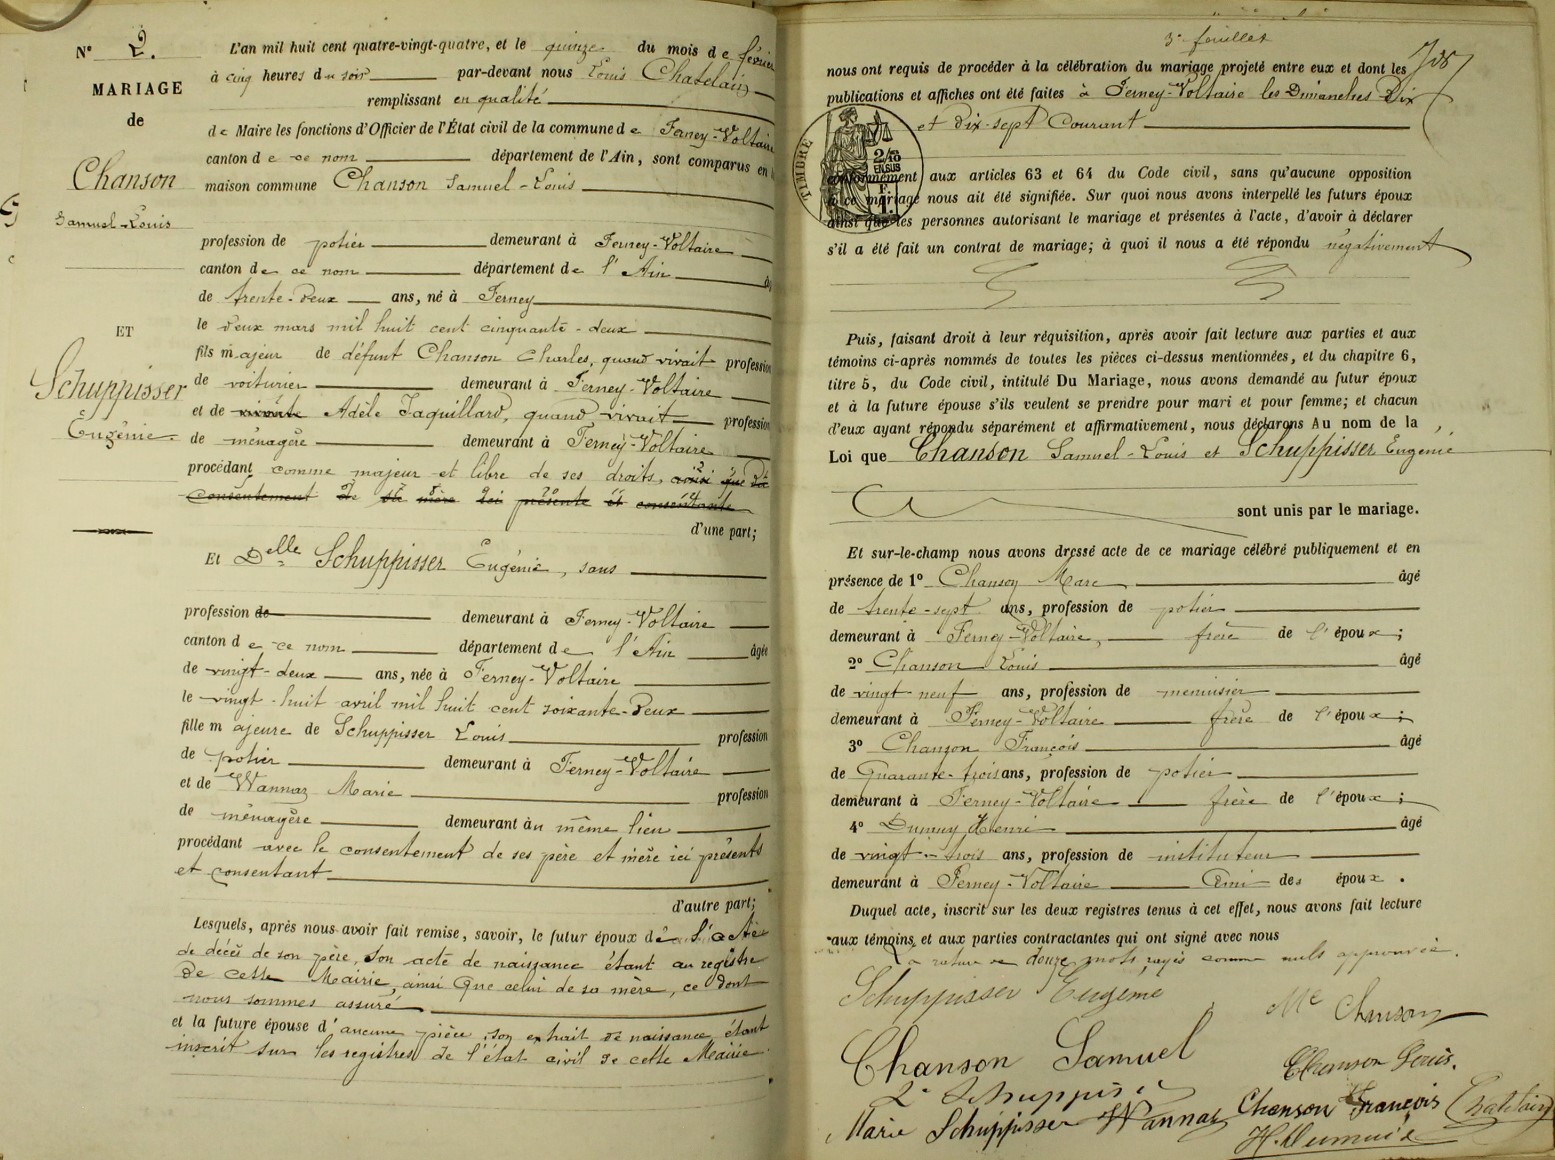 N° 2.
MARIAGE
de
Chanson
Samuel-Louis
ET
Schuppisser
Eugénie
L'an mil huit cent quatre-vingt-quatre, et le quinze du mois de février
à cinq heures du soir par-devant nous Louis Chatelain
remplissant en qualité
de Maire les fonctions d'Officier de l'État civil de la commune de Ferney-Voltaire
canton de ce nom département de l'Ain, sont comparus en la
maison commune Chanson Samuel-Louis
profession de potier demeurant à Ferney-Voltaire
canton de ce nom département de l'Ain âgé
de trente-deux ans, né à Ferney
le deux mars mil huit cent cinquante-deux
fils majeur de défunt Chanson Charles, quand vivait profession
de voiturier demeurant à Ferney-Voltaire
et de vivante Adèle Jaquillard, quand vivait profession
de ménagère demeurant à Ferney-Voltaire
procédant comme majeur et libre de ses droits, ainsi que du
consentement de sa mère ici présente et consentante
d'une part;
Et Delle Schuppisser Eugénie, sans
profession de demeurant à Ferney-Voltaire
canton de ce nom département de l'Ain âgée
de vingt-deux ans, née à Ferney-Voltaire
le vingt-huit avril mil huit cent soixante-deux
fille majeure de Schuppisser Louis profession
de potier demeurant à Ferney-Voltaire
et de Wannaz Marie profession
de ménagère demeurant au même lieu
procédant avec le consentement de ses père et mère ici présents
et consentant
d'autre part;
Lesquels, après nous avoir fait remise, savoir, le futur époux de l'acte
de décès de son père, son acte de naissance étant au registre
de cette Mairie, ainsi que celui de sa mère, ce dont
nous sommes assuré
et la future épouse d'aucune pièce, son extrait de naissance étant
inscrit sur les registres de l'état civil de cette Mairie.
3e feuillet
nous ont requis de procéder à la célébration du mariage projeté entre eux et dont les
publications et affiches ont été faites à Ferney-Voltaire les Dimanches Dix
et Dix-sept Courant
TIMBRE
2/10
EN SUS
conformément aux articles 63 et 64 du Code civil, sans qu'aucune opposition
à ce mariage nous ait été signifiée. Sur quoi nous avons interpellé les futurs époux
ainsi que les personnes autorisant le mariage et présentes à l'acte, d'avoir à déclarer
s'il a été fait un contrat de mariage; à quoi il nous a été répondu négativement
Puis, faisant droit à leur réquisition, après avoir fait lecture aux parties et aux
témoins ci-après nommés de toutes les pièces ci-dessus mentionnées, et du chapitre 6,
titre 5, du Code civil, intitulé Du Mariage, nous avons demandé au futur époux
et à la future épouse s'ils veulent se prendre pour mari et pour femme; et chacun
d'eux ayant répondu séparément et affirmativement, nous déclarons Au nom de la
Loi que Chanson Samuel-Louis et Schuppisser Eugénie
sont unis par le mariage.
Et sur-le-champ nous avons dressé acte de ce mariage célébré publiquement et en
présence de 1° Chanson Marc âgé
de trente-sept ans, profession de potier
demeurant à Ferney-Voltaire, frère de l'époux;
2° Chanson Louis âgé
de vingt neuf ans, profession de menuisier
demeurant à Ferney-Voltaire frère de l'époux;
3° Chanson François âgé
de Quarante-trois ans, profession de potier
demeurant à Ferney-Voltaire frère de l'époux;
4° Dumuy Henri âgé
de vingt-trois ans, profession de instituteur
demeurant à Ferney-Voltaire Ami des époux.
Duquel acte, inscrit sur les deux registres tenus à cet effet, nous avons fait lecture
aux témoins et aux parties contractantes qui ont signé avec nous
La rature de douze mots rayés comme nuls approuvée.
Schuppisser Eugénie
Mc Chanson
Chanson Samuel
Chanson Louis.
Ls Schuppisser
Marie Schuppisser Wannaz Chanson François Chatelain